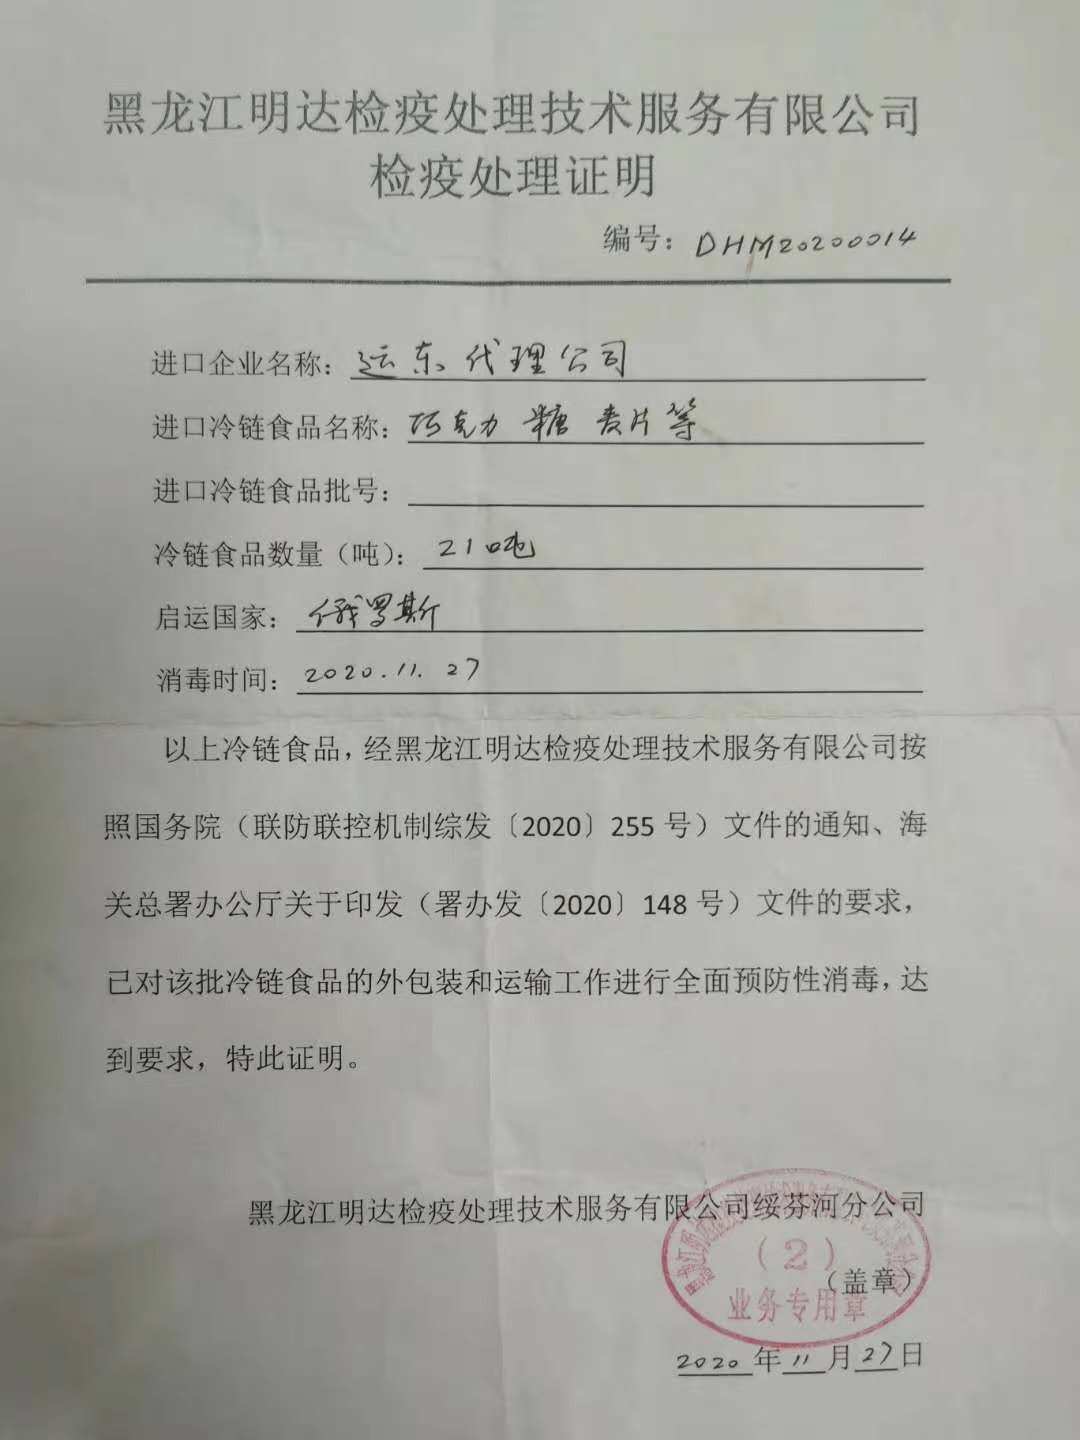 黑龙江明达检疫处理技术服务有限公司
检疫处理证明
编号：DHM20200014
进口企业名称：运东代理公司
进口冷链食品名称：巧克力 糖 麦片等
进口冷链食品批号：
冷链食品数量（吨）：21吨
启运国家：俄罗斯
消毒时间：2020.11.27
以上冷链食品，经黑龙江明达检疫处理技术服务有限公司按
照国务院（联防联控机制综发〔2020〕255号）文件的通知、海
关总署办公厅关于印发（署办发〔2020〕148号）文件的要求，
已对该批冷链食品的外包装和运输工作进行全面预防性消毒，达
到要求，特此证明。
黑龙江明达检疫处理技术服务有限公司绥芬河分公司
（2）
（盖章）
业务专用章
2020年11月27日